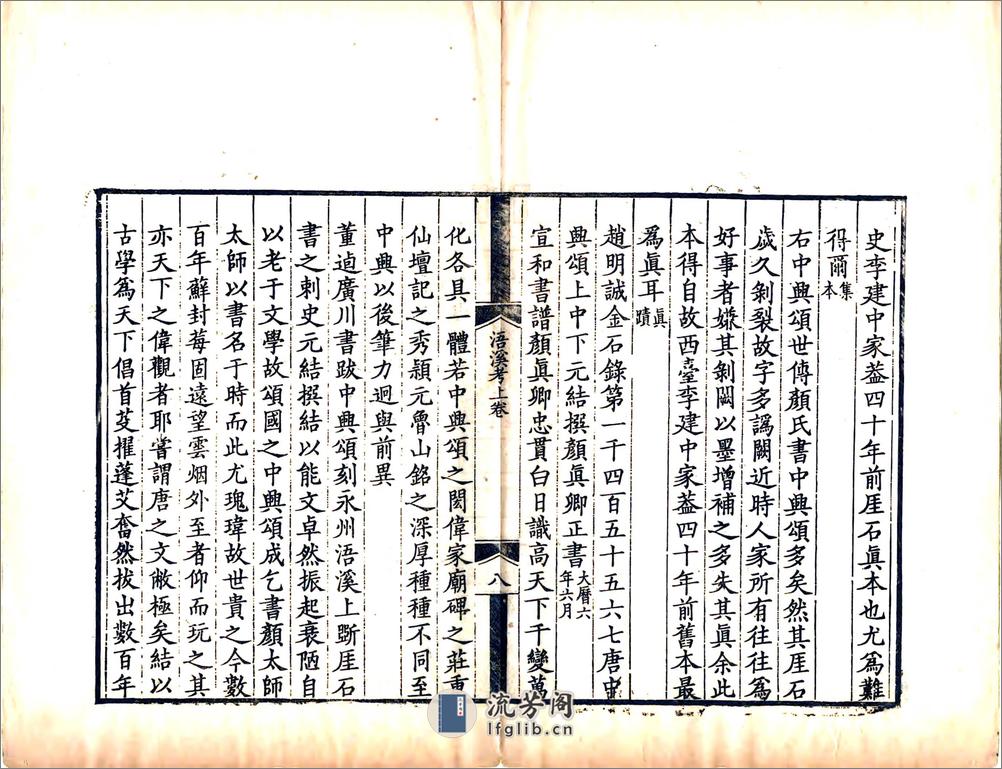 史李建中家葢四十年前崖石眞本也尤爲難
得爾集本
右中興頌世傳顏氏書中興頌多矣然其崖石
歲久剝裂故字多譌闕近時人家所有往往爲
好事者嫌其剝闕以墨增補之多失其眞余此
本得自故西臺李建中家葢四十年前舊本最
爲眞耳眞蹟
趙明誠金石錄第一千四百五十五六七唐中
興頌上中下元結撰顏眞卿正書大曆六年六月
宣和書譜顏眞卿忠貫白日識高天下千變萬
浯溪考上卷
八
化各具一體若中興頌之閎偉家廟碑之莊重
仙壇記之秀頴元魯山銘之深厚種種不同至
中興以後筆力迥與前異
董逌廣川書跋中興頌刻永州浯溪上斲崖石
書之刺史元結撰結以能文卓然振起衰陋自
以老于文學故頌國之中興頌成乞書顏太師
太師以書名于時而此尤瑰瑋故世貴之今數
百年蘚封莓固遠望雲烟外至者仰而玩之其
亦天下之偉觀者耶嘗謂唐之文敝極矣結以
古學爲天下倡首芟擢蓬艾奮然拔出數百年
流芳阁
lfglib.cn